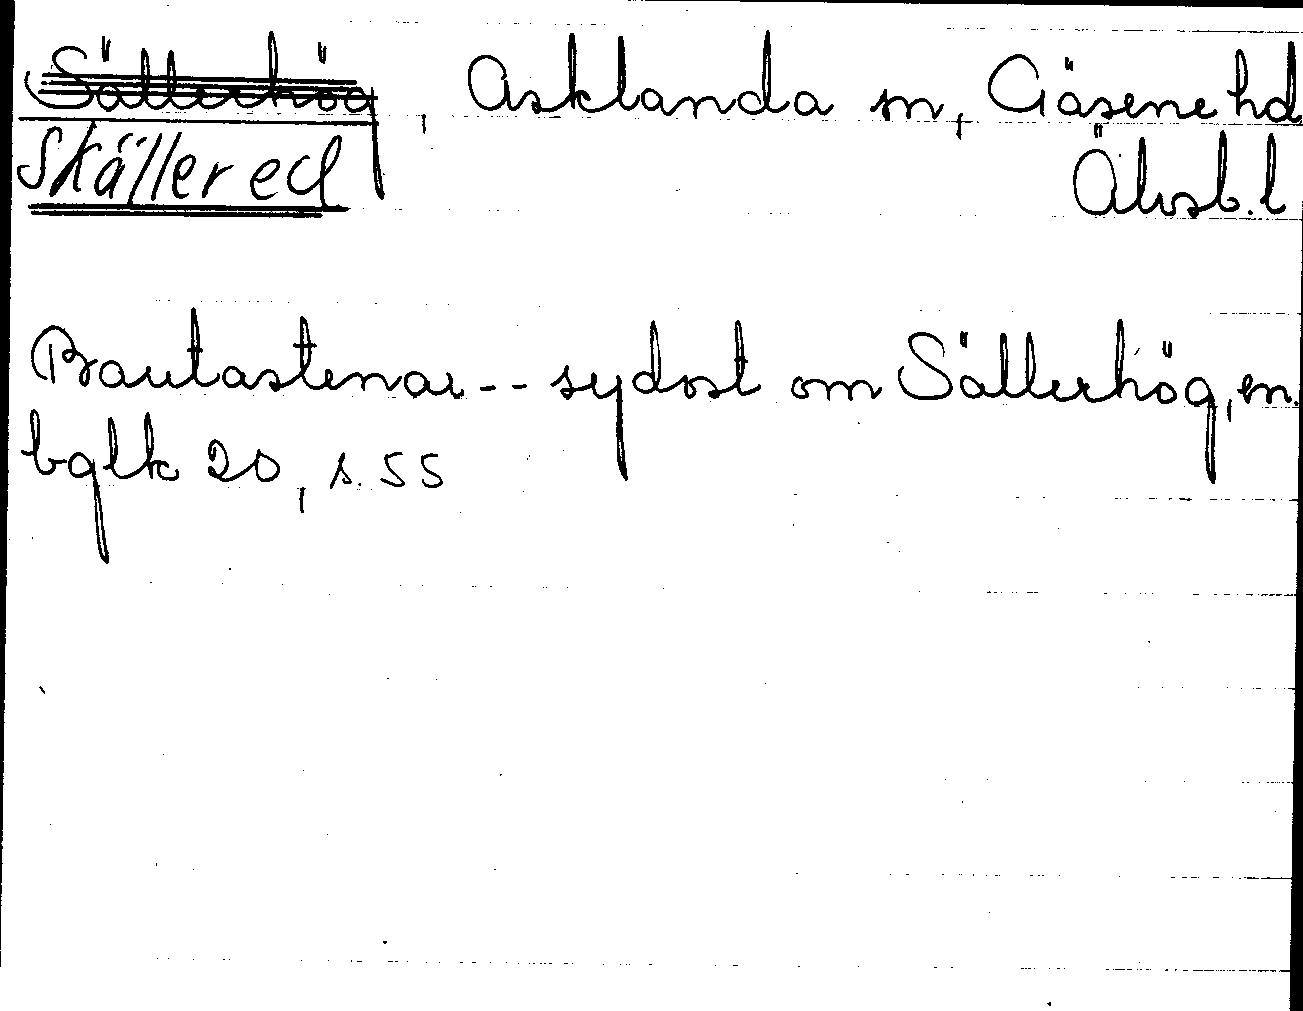 Sällerhög, Asklanda sn, Gäsene hd
Skällered Älvsb. l
Bautastenar -- sydost om Sällerhög, en.
bglk 20, s. 55